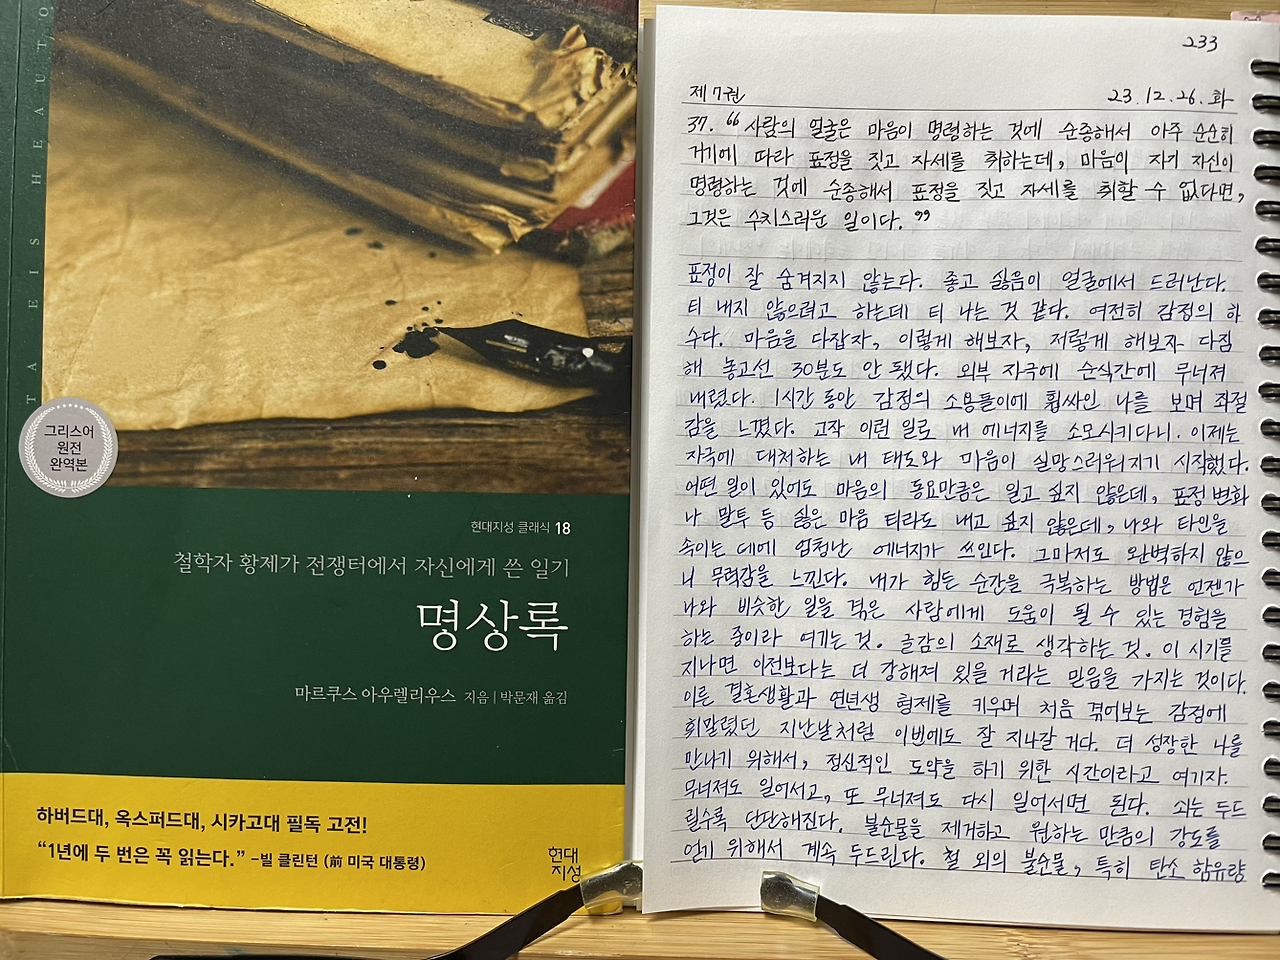 T A E I S H E A U T O
그리스어
원전
완역본
현대지성 클래식 18
철학자 황제가 전쟁터에서 자신에게 쓴 일기
명상록
마르쿠스 아우렐리우스 지음 | 박문재 옮김
하버드대, 옥스퍼드대, 시카고대 필독 고전!
“1년에 두 번은 꼭 읽는다.” –빌 클린턴 (前 미국 대통령)
현대
지성
233
제7권 23.12.26.화
37. “사람의 얼굴은 마음이 명령하는 것에 순종해서 아주 순순히
거기에 따라 표정을 짓고 자세를 취하는데, 마음이 자기 자신이
명령하는 것에 순종해서 표정을 짓고 자세를 취할 수 없다면,
그것은 수치스러운 일이다.”
표정이 잘 숨겨지지 않는다. 좋고 싫음이 얼굴에서 드러난다.
티 내지 않으려고 하는데 티 나는 것 같다. 여전히 감정의 하
수다. 마음을 다잡자, 이렇게 해보자, 저렇게 해보자 다짐
해 놓고선 30분도 안 됐다. 외부 자극에 순식간에 무너져
내렸다. 1시간 동안 감정의 소용돌이에 휩싸인 나를 보며 좌절
감을 느꼈다. 고작 이런 일로 내 에너지를 소모시키다니. 이제는
자극에 대처하는 내 태도와 마음이 실망스러워지기 시작했다.
어떤 일이 있어도 마음의 동요만큼은 일고 싶지 않은데, 표정 변화
나 말투 등 싫은 마음 티라도 내고 싶지 않은데, 나와 타인을
속이는 데에 엄청난 에너지가 쓰인다. 그마저도 완벽하지 않으
니 무력감을 느낀다. 내가 힘든 순간을 극복하는 방법은 언젠가
나와 비슷한 일을 겪은 사람에게 도움이 될 수 있는 경험을
하는 중이라 여기는 것. 글감의 소재로 생각하는 것. 이 시기를
지나면 이전보다는 더 강해져 있을 거라는 믿음을 가지는 것이다.
이른 결혼생활과 연년생 형제를 키우며 처음 겪어보는 감정에
휘말렸던 지난날처럼 이번에도 잘 지나갈 거다. 더 성장한 나를
만나기 위해서, 정신적인 도약을 하기 위한 시간이라고 여기자.
무너져도 일어서고, 또 무너져도 다시 일어서면 된다. 쇠는 두드
릴수록 단단해진다. 불순물을 제거하고 원하는 만큼의 강도를
얻기 위해서 계속 두드린다. 철 외의 불순물, 특히 탄소 함유량